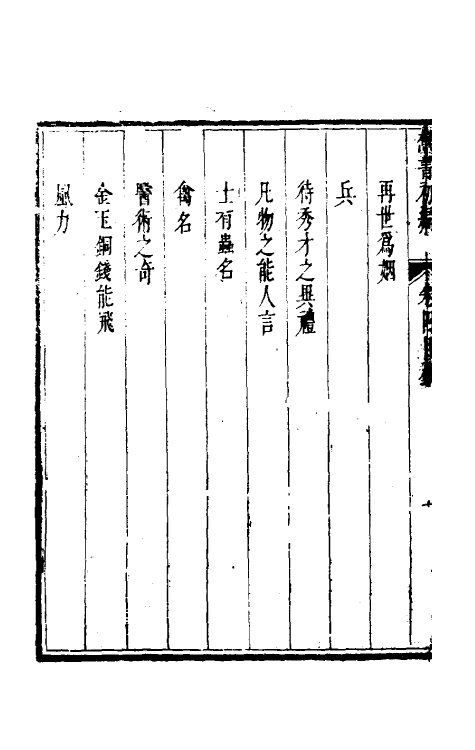 再世爲姻
兵
待秀才之異禮
凡物之能人言
士有蟲名
禽名
醫術之奇
金玉銅錢能飛
風力